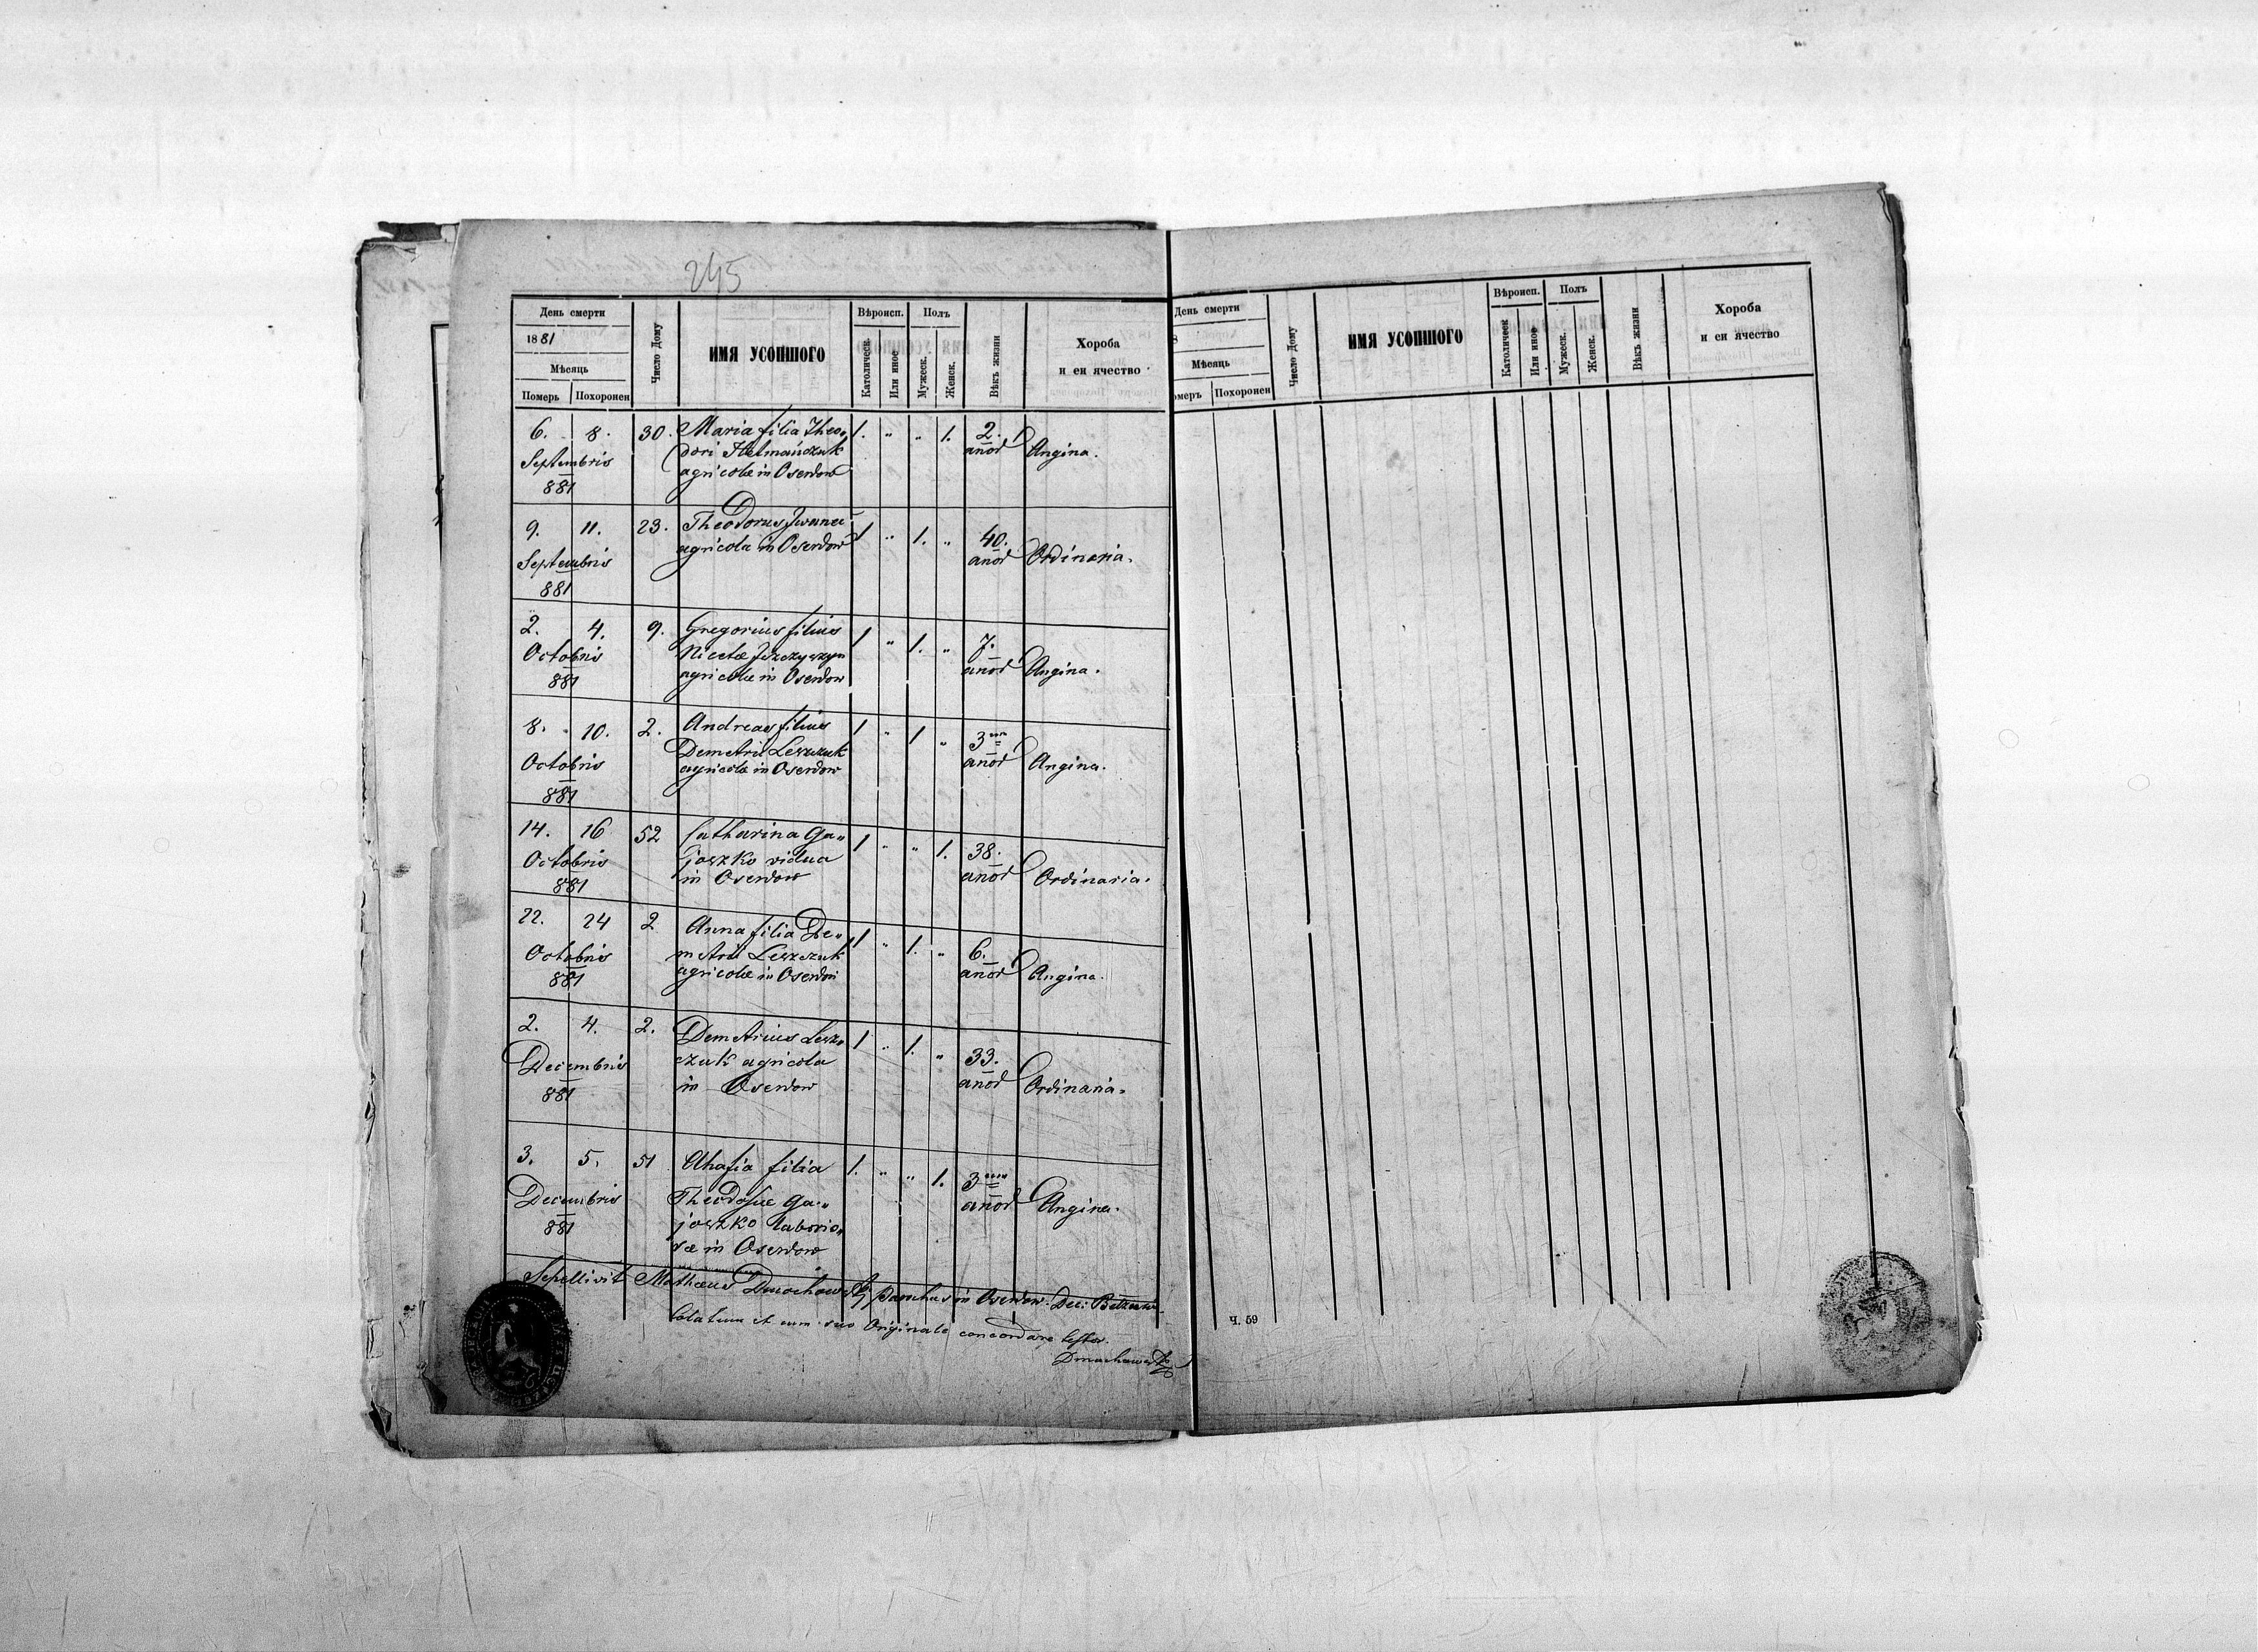 245
День смерти
1881
Мѣсяць
Померъ Похоронен
Число Дому
ИМЯ УСОПШОГО
Вѣроисп.
Католическ.
Или иное
Полъ
Мужеск.
Женск.
Вѣкъ жизни
Хороба
и еи ячество
6. 8. 30. Maria filia Theo„ 1. „ „ 1. 2.
Septembris dori Hetmańczuk anor Angina.
881 agricolae in Oserdow
9. 11. 23. Theodorus Iwanec 1 „ 1. „ 40.
Septembris agricola in Oserdow anor Ordinaria.
881
2. 4. 9. Gregorius filius 1 „ 1. „ 7.
Octobris Nicetae anor Angina.
881 agricolae in Oserdow
8. 10. 2. Andreas filius 1 „ 1 „ 3
Octobris Demetrii Leszczuk anor Angina.
881 agricolae in Oserdow
14. 16 52 Catharina Ga„ 1 „ „ 1. 38.
Octobris joszko vidua anor Ordinaria.
881 in Oserdow
22. 24 2 Anna filia De„ 1 „ 1. „ 6.
Octobris metrii Leszczuk anor Angina.
881 agricolae in Oserdow
2. 4. 2. Demetrius Lesz„ 1 „ 1. „ 33.
Decembris czuk agricola anor Ordinaria.
881 in Oserdow
3. 5. 51 Ahafia filia 1. „ „ 1. 3
Decembris Theodosiae Ga„ anor Angina.
881 joszko laborio„
sae in Oserdow
Sepellivit Mathaeus Dmochowski Parochus in Oserdow. Dec:
Collatum et cum suo Originale concordare testor.
Dmochowski
День смерти
8
Мѣсяць
омеръ Похоронен
Число Дому
ИМЯ УСОПШОГО
Вѣроисп.
Католическ
Или иное
Полъ
Мужеск.
Женск.
Вѣкъ жизни
Хороба
и еи ячество
Ч. 59